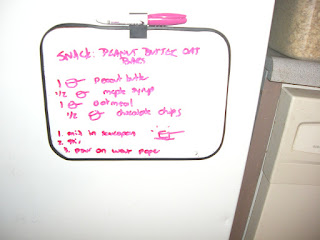 SNACK: PEANUT BUTTER OAT
BARS
1 peanut
1/2 maple syrup
1 oatmeal
1/2 chocolate chips
1. in saucepan
2.
3. pour on wax paper